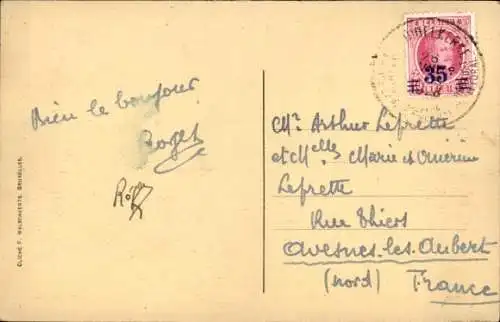 Bien le bonjour
Roger
Mr Arthur Lefrette
et Melles Marie et
Lefrette
Rue Thiers
Avesnes-les-Aubert
(nord) France
35
CLICHÉ F. WALSCHAERTS, BRUXELLES.